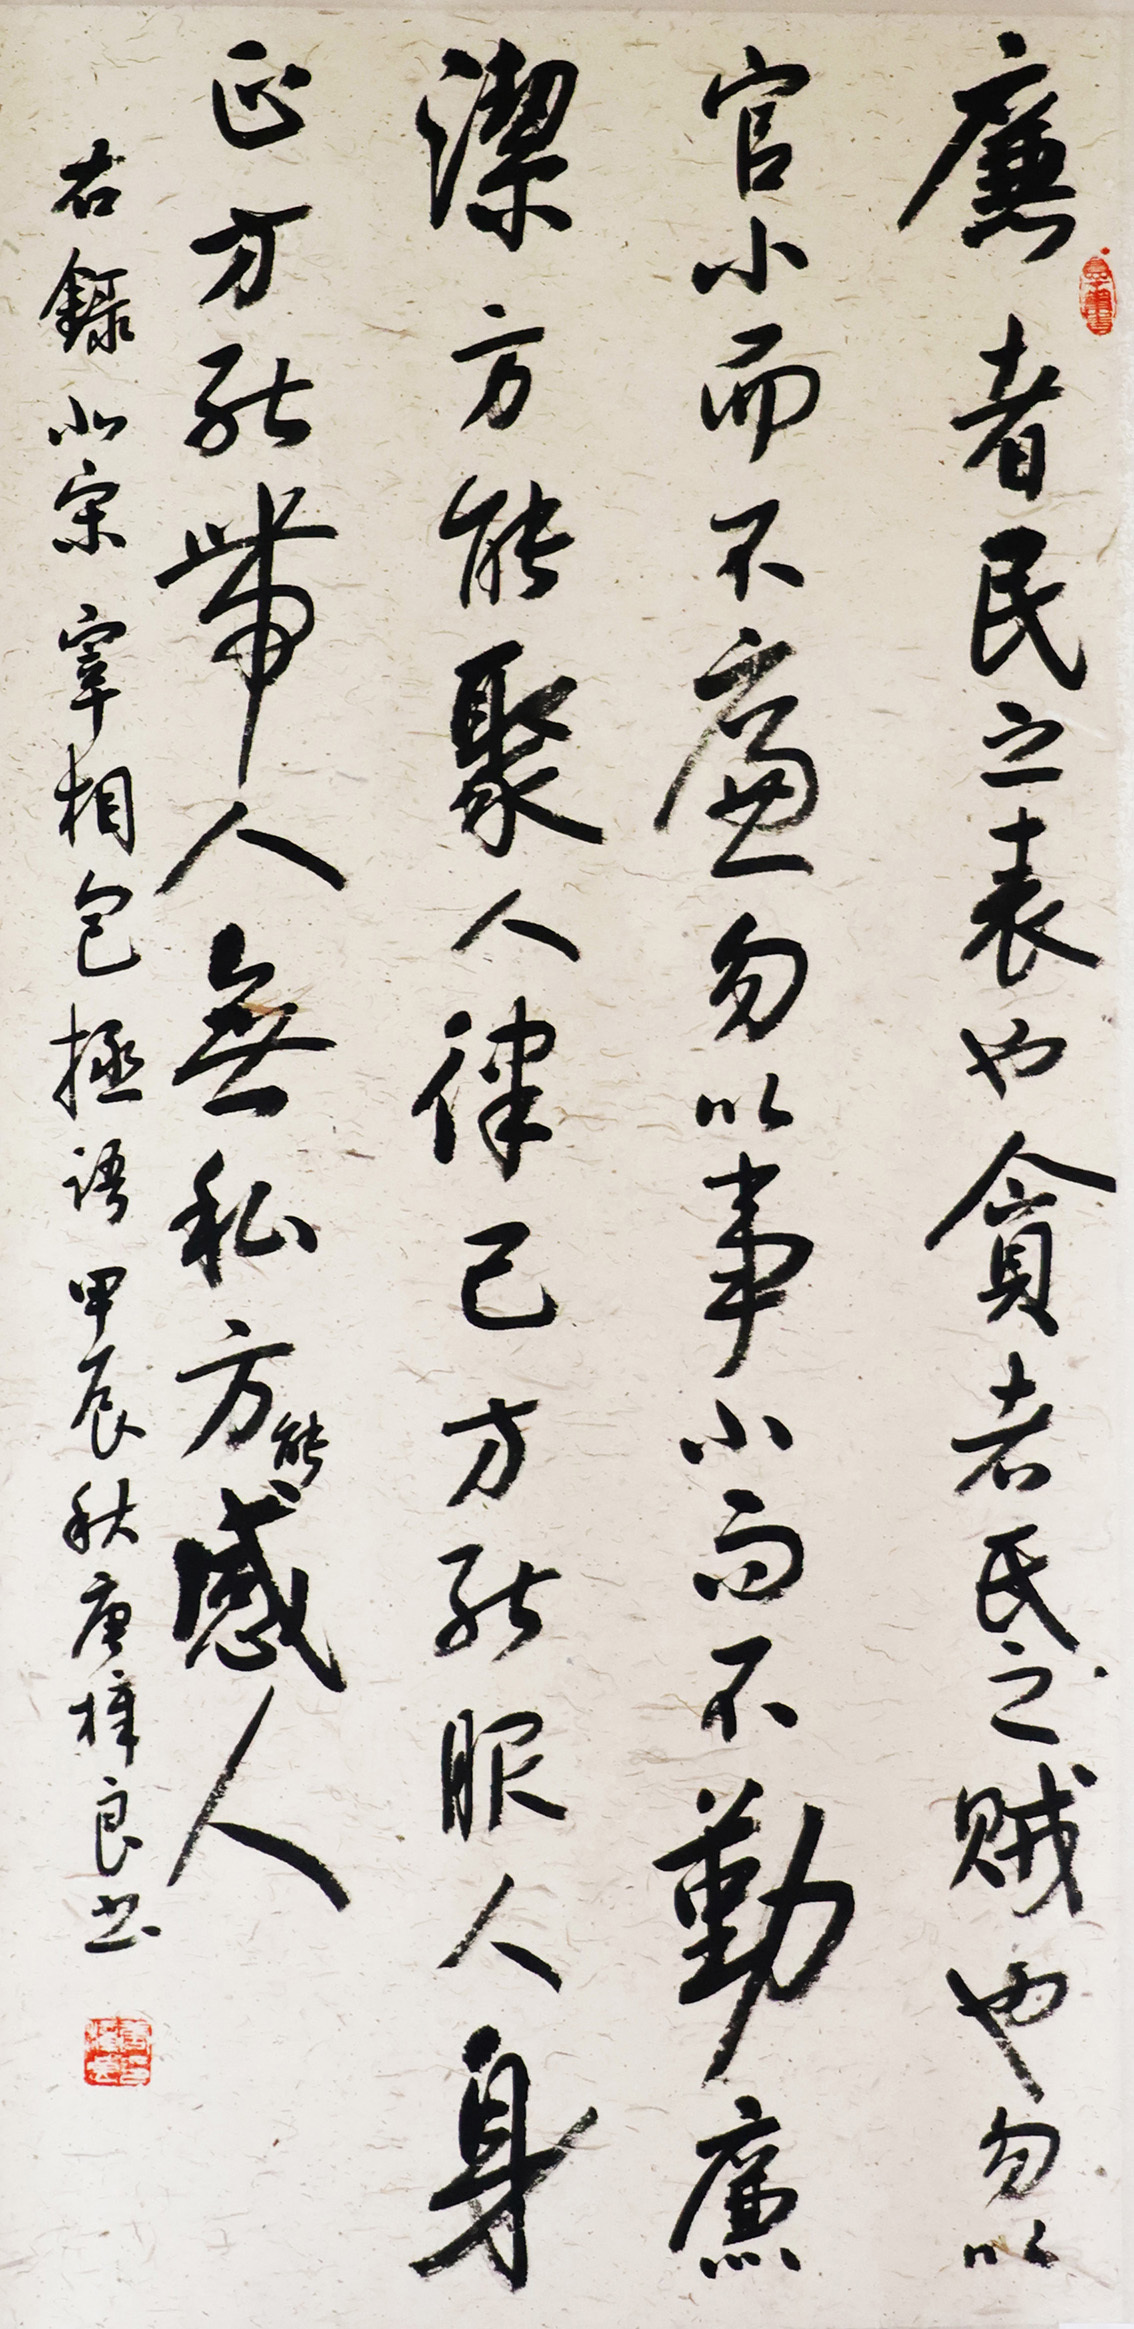 廉者民之表也貪者民之賊也勿以
官小而不廉勿以事小而不勤廉
潔方能聚人律己方能服人身
正方能帶人無私方能感人
右錄北宋宰相包拯語甲辰秋唐樟良书